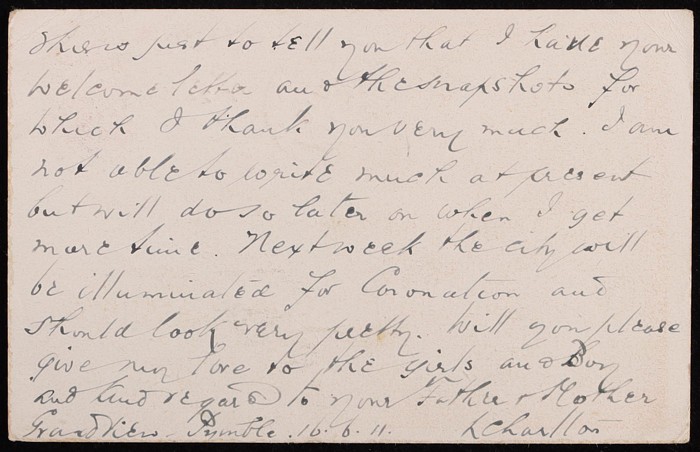 This is just to tell you that I have your
welcome letter and the snapshots for
which I thank you very much. I am
not able to write much at present
but will do so later on when I get
more time. Next week the city will
be illuminated for Coronation and
should look very pretty. Will you please
give my love to the girls and Boy
and kind regards to your Father & Mother
Grandview - Pymble. 16.6.11. L Charlton